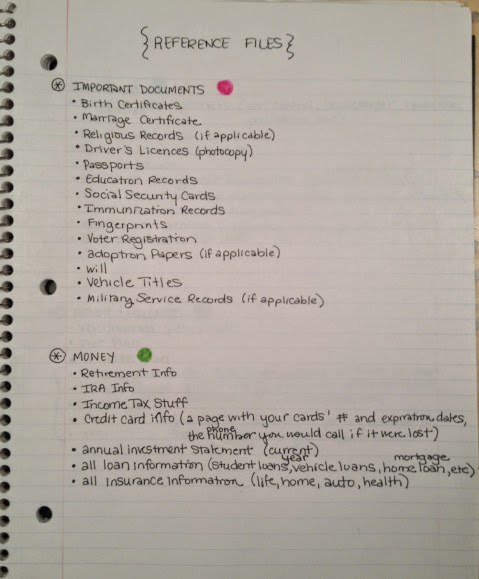 {REFERENCE FILES}
* IMPORTANT DOCUMENTS
• Birth Certificates
• Marriage Certificate
• Religious Records (if applicable)
• Driver's Licences (photocopy)
• Passports
• Education Records
• Social Security Cards
• Immunization Records
• Fingerprints
• Voter Registration
• adoption Papers (if applicable)
• Will
• Vehicle Titles
• Military Service Records (if applicable)
* MONEY
• Retirement Info
• IRA Info
• Income Tax Stuff
• Credit card info (a page with your cards' # and expiration dates,
the phone number you would call if it were lost)
• annual investment statement (current year)
• all loan information (student loans, vehicle loans, home loan, mortgage etc)
• all Insurance Information (life, home, auto, health)